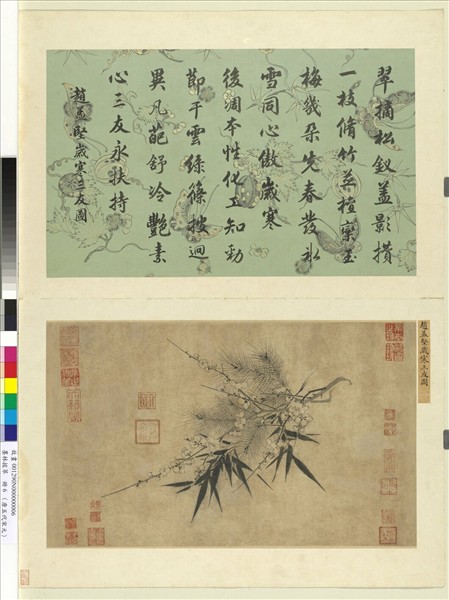 翠摘松釵蓋影攢
一枝脩竹並檀欒玉
梅幾朵先春發冰
雪同心傲歲寒
後凋本性化工知勁
節干雲綠篠披迥
異凡葩舒冷艷素
心三友永扶持
趙孟堅歲寒三友圖
趙孟堅歲寒三友圖
故畫001290N000000006
墨林拔萃 冊6 (唐五代宋元)